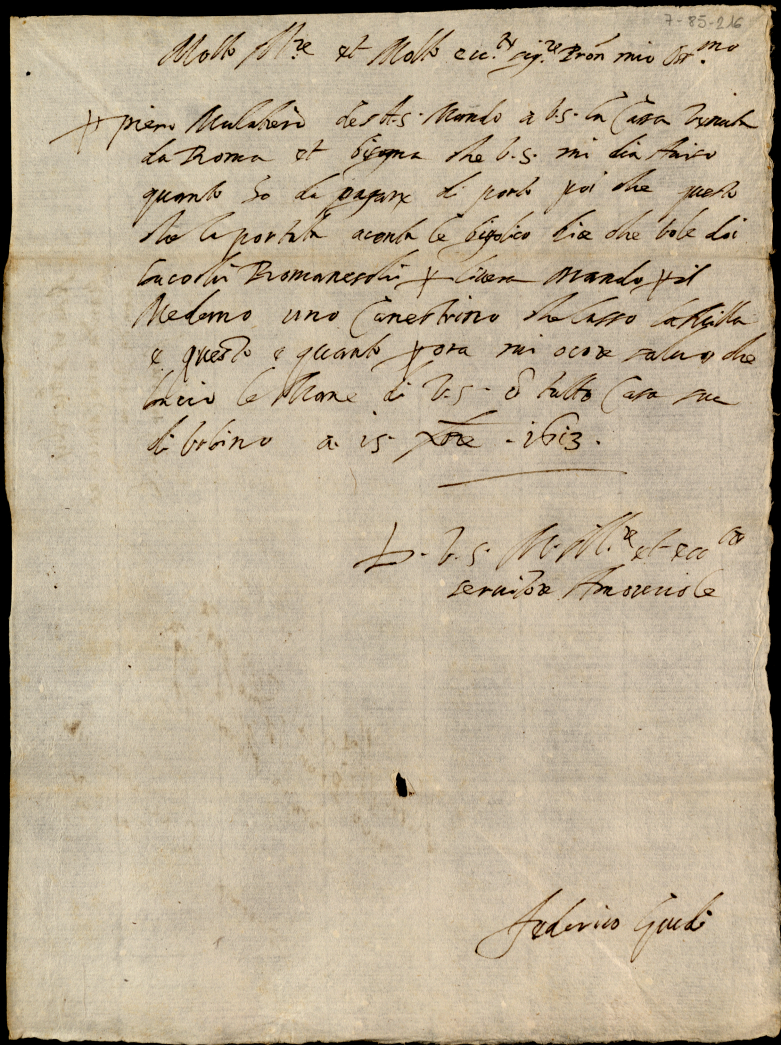 7-85-216
Molto Ill.re et Molto ecc.te sig.re Pron mio oss.mo
piero Mulatiero dest A.S. Mando a V.S. la Casa Venuta
da Roma et bisogna che V.S. mi dia Aviso
quanto ho da pagare di porto poi che questo
che la portata le dice che vole doi
Romaneschi mando il
Medemo uno Canestrino che lasso
e questo e quanto p ora mi ocore salvo che
bacio le Mane di V.S. & tutto Casa sua
di Urbino a 15 xbre 1613.
D. V.S. M. Ill.re et ecc.te
servitore Amorevole
Federico Guidi